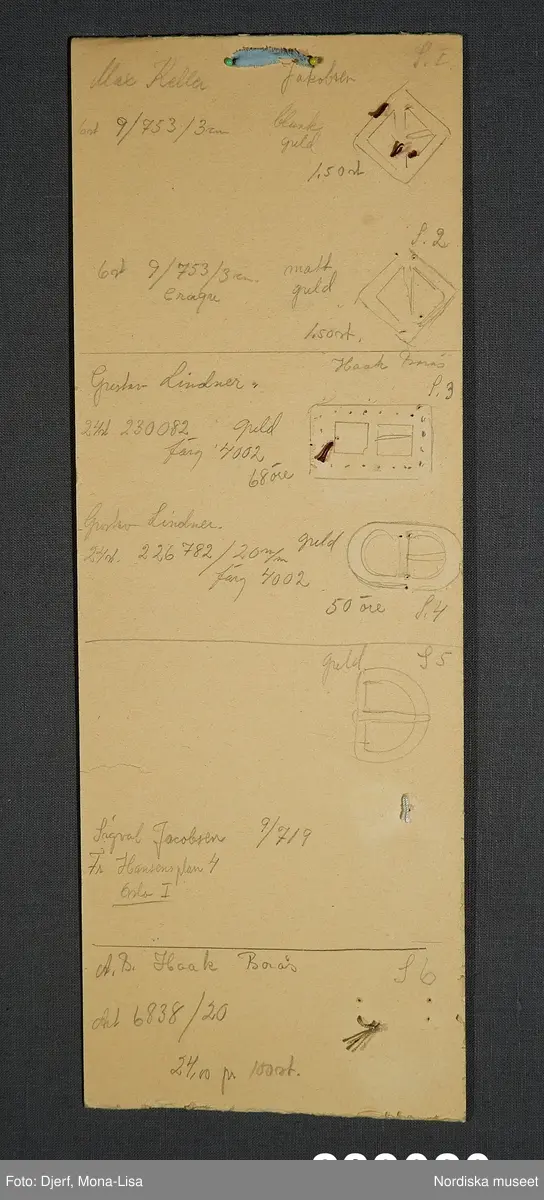 Max Keller Jakobsen S. I
9/753/3 cm blank
guld
1,50 st
S. 2
9/753/3 cm matt
guld
1,50 st.
Haak Borås
Gustav Lindner. S. 3
24st. 230082 guld
färg 4002
68 öre
Gustav Lindner.
24st. 226782/20 m/m guld
färg 4002
50 öre S. 4
guld S 5
Sigval Jacobsen 9/719
Fr Hansensplan 4
Oslo I
A. B. Haak Borås S 6
6838/20
24,00 pr 100 st.
Foto: Djerf, Mona-Lisa Nordiska museet